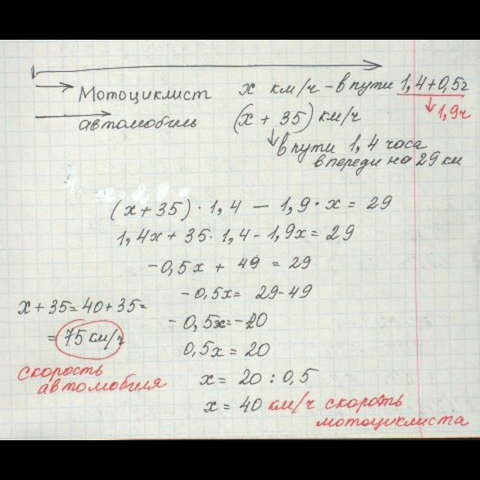 Мотоциклист x км/ч - в пути 1,4+0,5ч
1,9ч
автомобиль (x + 35) км/ч
в пути 1,4 часа
впереди на 29 км
(x+35)·1,4 - 1,9·x = 29
1,4x + 35·1,4 - 1,9x = 29
-0,5x + 49 = 29
-0,5x = 29-49
-0,5x = -20
0,5x = 20
x = 20 : 0,5
x = 40 км/ч скорость
мотоциклиста
x + 35 = 40 + 35 =
= 75 км/ч
скорость
автомобиля